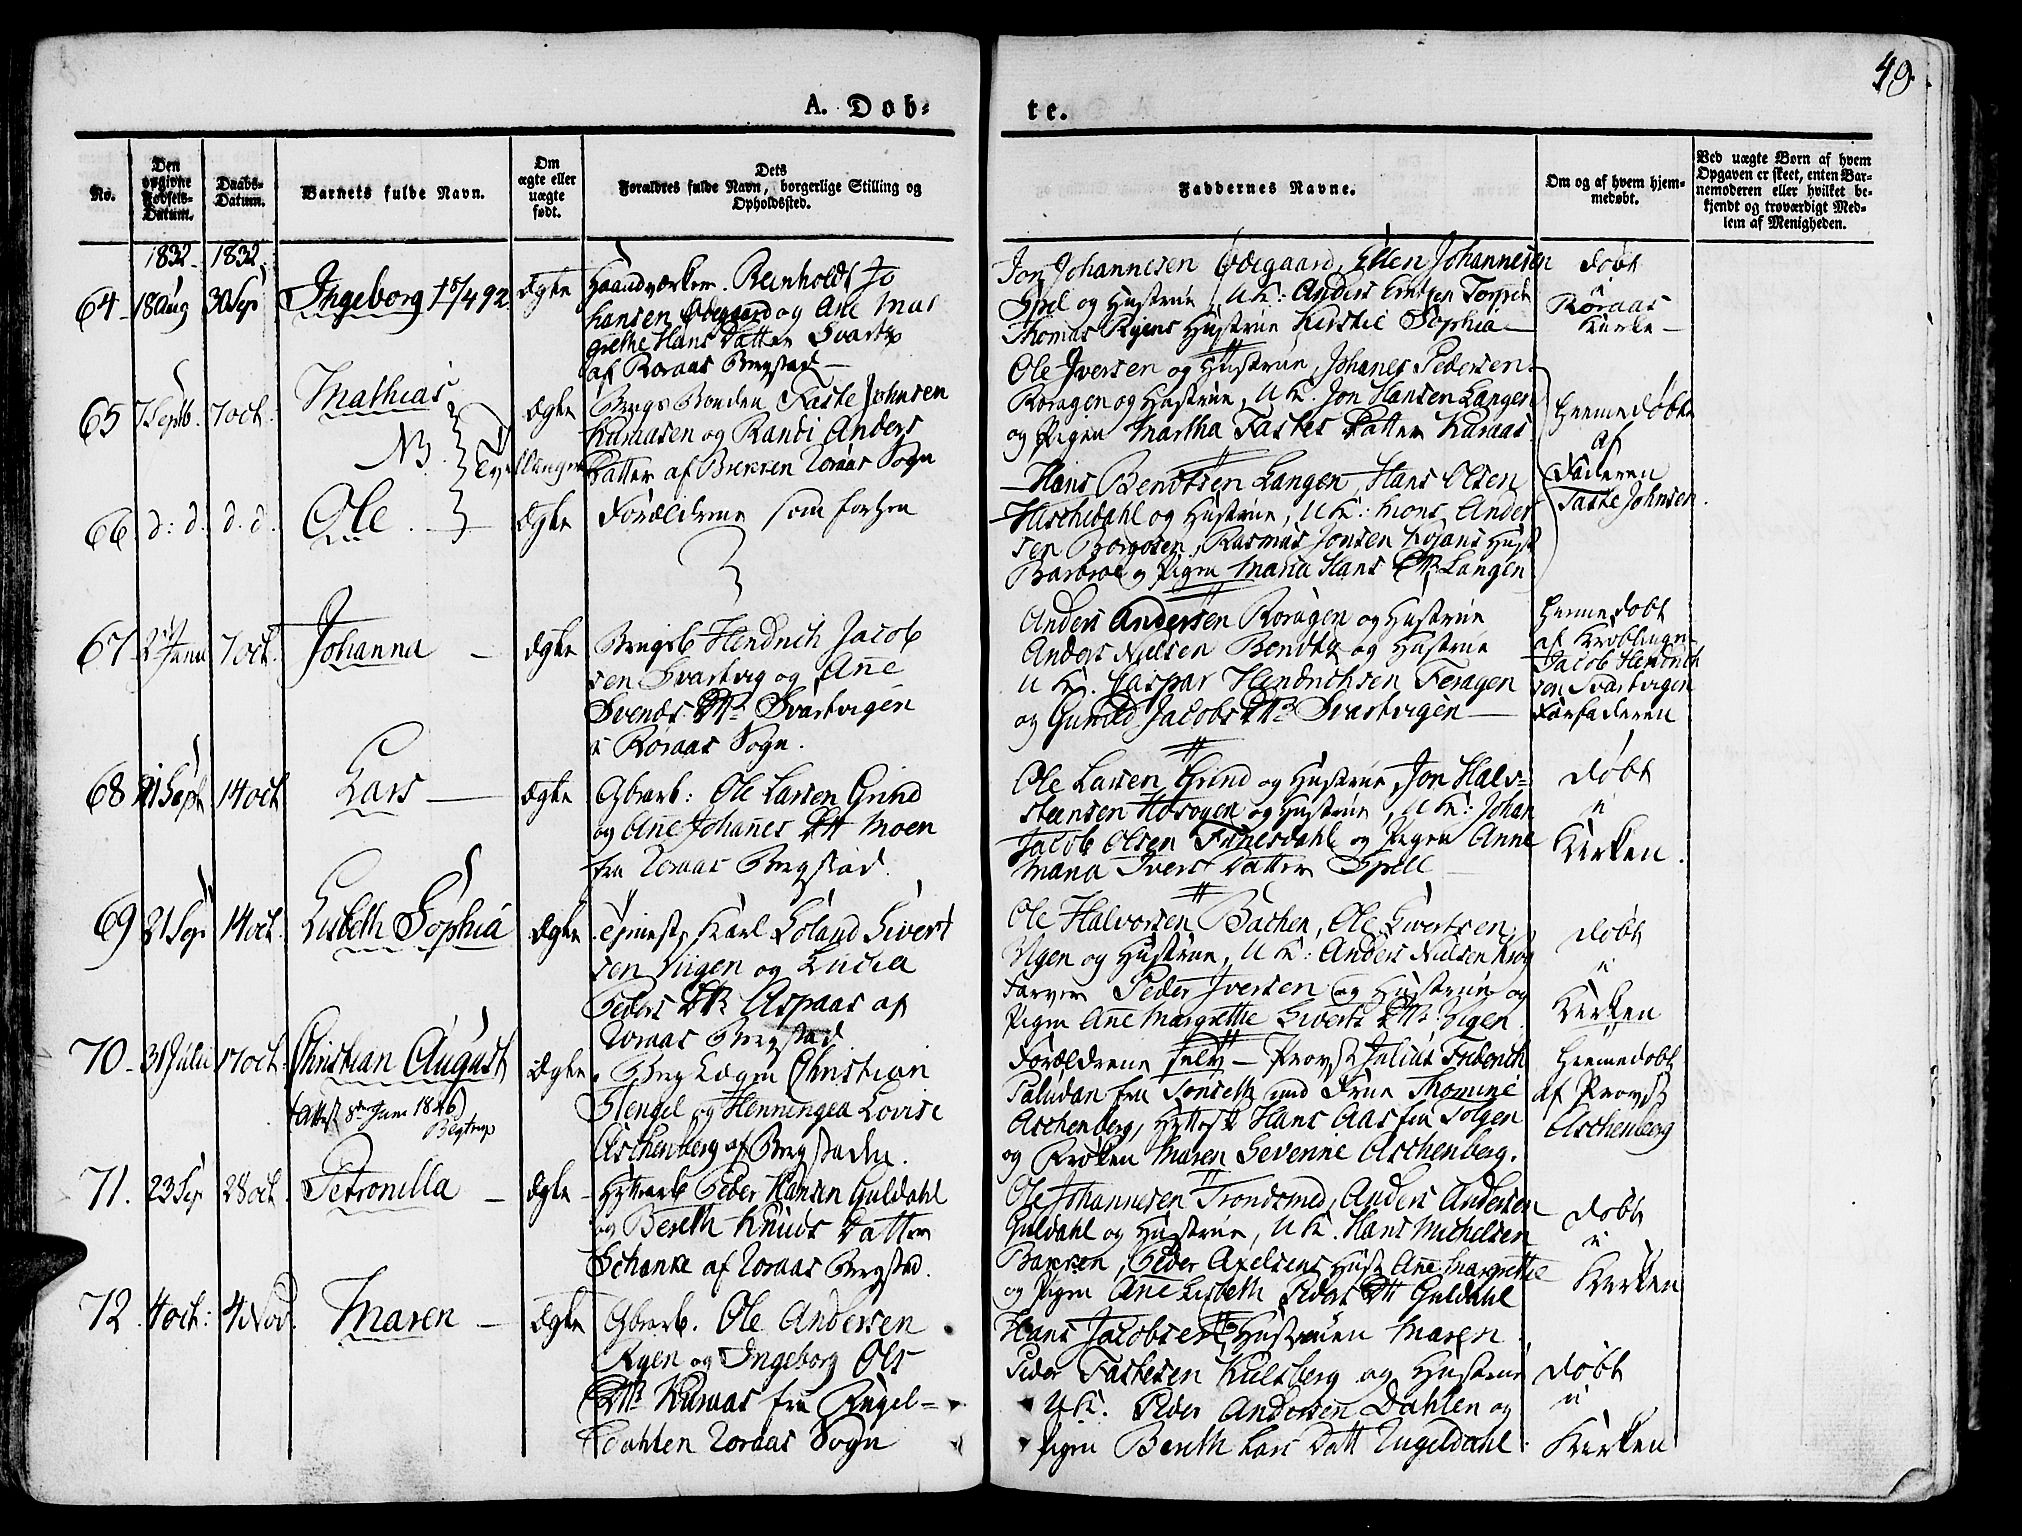 49.
A. Døb-
te.
No.
Den opgivne Fødsels-Datum.
Daabs-Datum.
Barnets fulde Navn.
Om ægte eller uægte født.
Dets Forældres fulde Navn, borgerlige Stilling og Opholdssted.
Faddernes Navne.
Om og af hvem hjemmedøbt.
Ved uægte Børn af hvem Opgaven er skeet, enten Barnemoderen eller hvilket bekjendt og troværdigt Medlem af Menigheden.
1832. 1832.
64 18 Aug 30 Sep Ingeborg ægte
Haandværker Reinholdt Jo
hansen Ødegaard og Ane Mar
grethe Hans Datter Svartz
af Røraas Bergstad
Jon Johannesen Ødegaard, Ellen Johannesen
Spel og Hustrue, U K: Anders
Thomas Ryens Hustrue Kirstie Sophia
døbt
i
Røraas
Kirke
65 7 Septb. 7 oct. Mathias ægte
NB Tvillinger
Bergs Bonden Faste Johnsen
Kuraasen og Randi Anders
Datter af Brekken Roraas Sogn
Ole Iversen og Hustrue, Johanes Pedersen
Roragen og Hustrue, U K. Jon Hansen Langen
og Pigen Martha Fastes Datter Kuraas
Hiemedøbte
af
Faderen
Faste Johnsen.
66 d: d. d. d. Ole ægte
Forældrene som forhen
Hans Bendtsen Langen, Hans Olsen
og Hustrue, U K: Mons Ander
sen Borgosen, Rasmus Jonsen Kojans Hust
Barbroe og Pigen Maria Hans Dtr Langen
67 7 oct. Johanna ægte
Bergsb Hendrich Jacob
sen Svartvig og Ane
Svends Dtr Svartvigen
i Røraas Sogn.
Anders Andersen Roragen og Hustrue
Anders Nielsen Bendtz og Hustrue
U K. Caspar Hendrichsen Feragen
og Gunild Jacobs Dtr Svartvigen
Hiemedøbt
af
Jacob Hendrich
sen Svartvigen
Farfaderen
68 21 Sept 14 oct Lars ægte
Gbrarb: Ole Larsen Grind
og Ane Johanes Dtt Moen
fra Roraas Bergstad.
Ole Larsen Grind og Hustrue, Jon Halv-
steensen og Hustrue, U K: Johan
Jacob Olsen Funesdahl og Pigen Anne
Maria Ivers Datter Spell
døbt
i
Kirken.
69 21 Sep 14 oct. Lisbeth Sophia ægte
Tjeneste Karl Loland Sivert
sen Viigen og Lucia
Peders Dtr Aspaas af
Roraas Bergstad.
Ole Halvorsen Bachen, Ole Sivertsen
Vigen og Hustrue, U K: Anders Nielsen Krog
Farver Peder Iversen og Hustrue og
Pigen Ane Margrethe Siverts Dtr Vigen.
døbt
i
Kirken
70 31 Julii 17 oct. Christian August ægte
(Attest 8de Juni 1846)
Bergtrup
Berg Lægen Christian
Stengel og Henningea Lovise
Aschenberg af Bergstaden.
Forældrene selv - Provst Julius Friderich
Paludan fra Tonseth med Frue Thomine
Aschenberg, Hans Aas fra Tolgen
og Frøken Maren Severine Aschenberg.
Hiemedøbt
af Provst
Aschenberg
71. 23 Sep 28 oct. Petronilla ægte
Hyttarb Peder Hansen Guldahl
og Bereth Knuds Datter
Schanke af Roraas Bergstad.
Ole Johannesen Trondsmed, Anders Andersen
Guldahl og Hustrue, U K. Hans Michelsen
Peder Axelsens Hust Ane Margrethe
og Pigen Ane Lisbeth Peders Dtt Guldahl
døbt
i
Kirken
72. 4 oct: 4 Nov. Maren ægte
Gbrarb. Ole Andersen
Ryen og Ingeborg Ols
Dtr Kuraas fra
dahlen Roraas Sogn
Hans Jacobsen Hustruen Maren
Peder Fastesen Kulsberg og Hustrue
U K. Peder Andersen Dahlen og
Pigen Bereth Lars Datt
døbt
i
Kirken